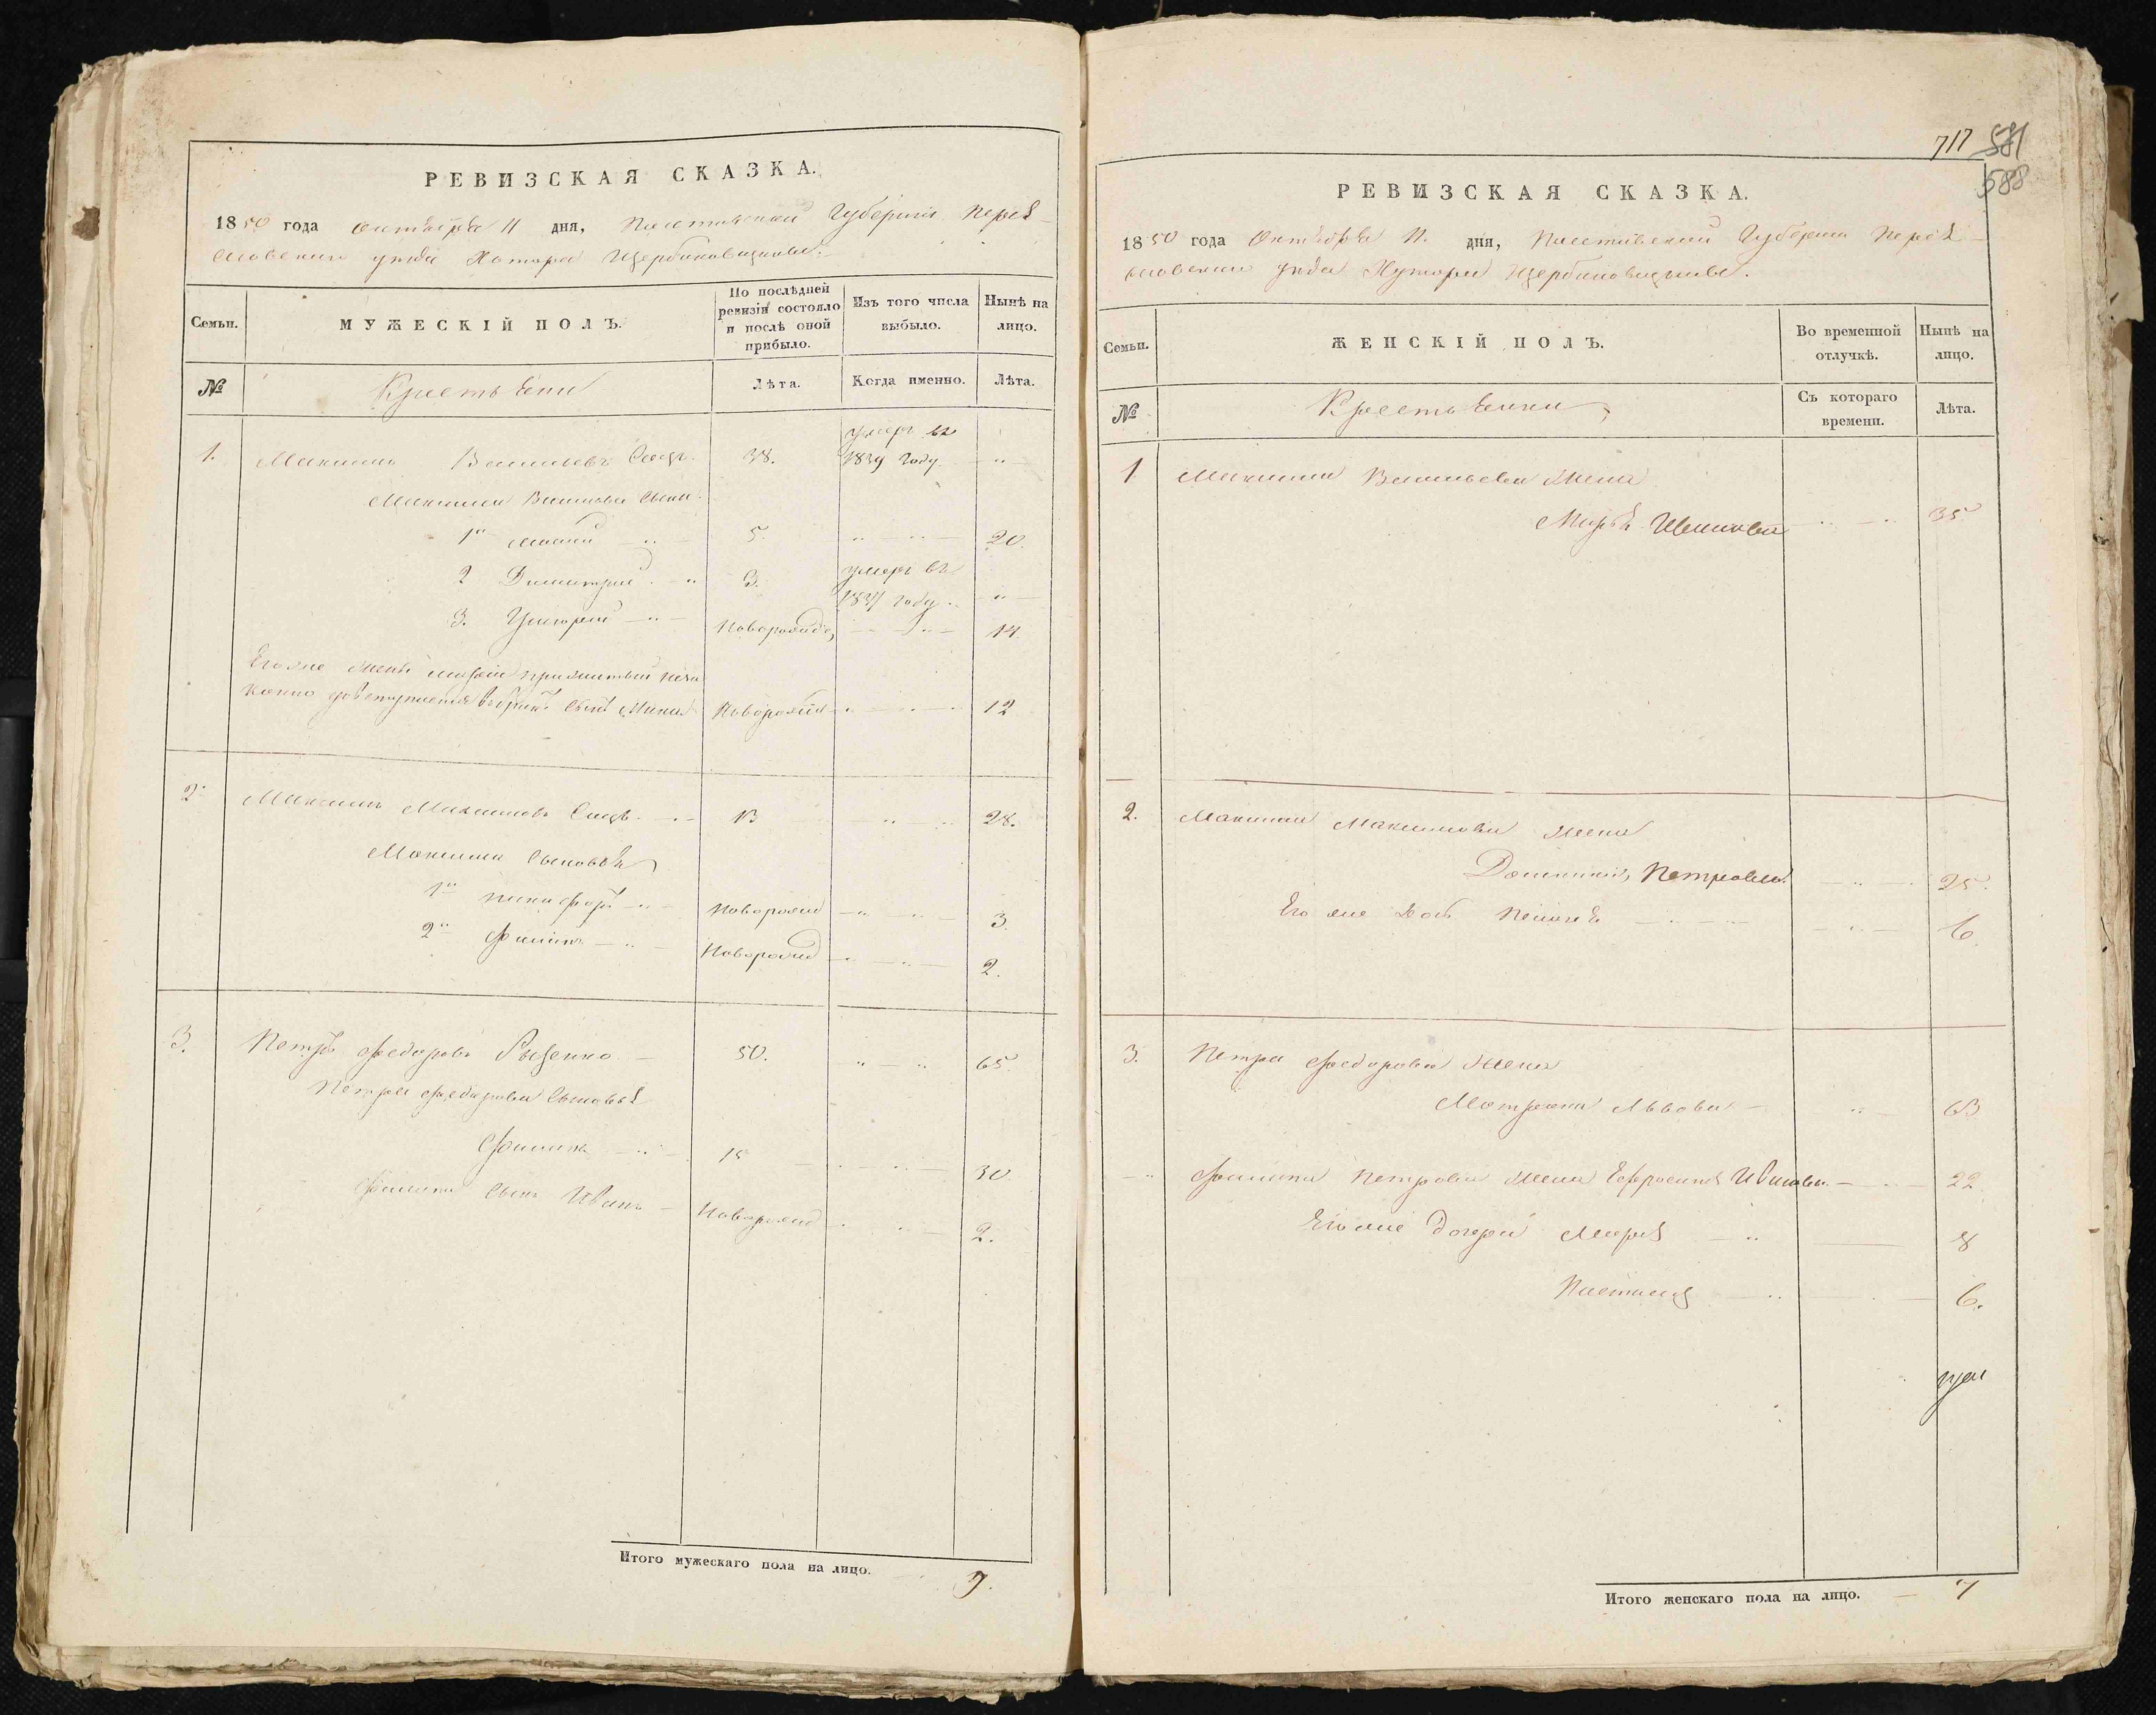 РЕВИЗСКАЯ СКАЗКА.
1850 года Октября 11 дня, Полтавской Губернии Перея-
славскаго уезда Хутора Щербановщины.
Семьи.
МУЖЕСКІЙ ПОЛЪ.
По послѣдней ревизіи состояло и послѣ оной прибыло.
Изъ того числа выбыло.
Нынѣ на лицо.
№
Крестьяни
Лѣта.
Когда именно.
Лѣта.
1. Максимъ Васильевъ 38. умеръ въ 1839 году
Максима сыны
1й 5. 20.
2 Димитрий 3. умеръ въ году
3. Григорий Новорожд 14.
Его же жены сынъ Новорожд 12
2. Максимъ Максимовъ 13 28.
Максима сыновья
1й Никифоръ Новорожд 3.
2й Филипъ Новорожд 2.
3. Петръ Федоровъ 50. 65.
Петра Федорова сыновья
Филипъ 15 30.
Филипа сынъ Иванъ Новорожд 2.
Итого мужескаго пола на лицо. 9.
717 581
588
РЕВИЗСКАЯ СКАЗКА.
1850 года Октября 11. дня, Полтавской Губернии Перея-
славскаго уезда Хутора Щербановщины.
Семьи.
ЖЕНСКІЙ ПОЛЪ.
Во временной отлучкѣ.
Нынѣ на лицо.
№
Крестьянки
Съ котораго времени.
Лѣта.
1 Максима Васильева жена
Марья Иванова 35
2. Максима Максимова жена
Домникия Петрова 25.
Его же дочь 6.
3. Петра Федорова жена
Матрона Львова 63
Филипа Петрова жена Ефросиния Иванова 22.
Его же дочери Марья 8
Настасия 6.
Итого женскаго пола на лицо. 7